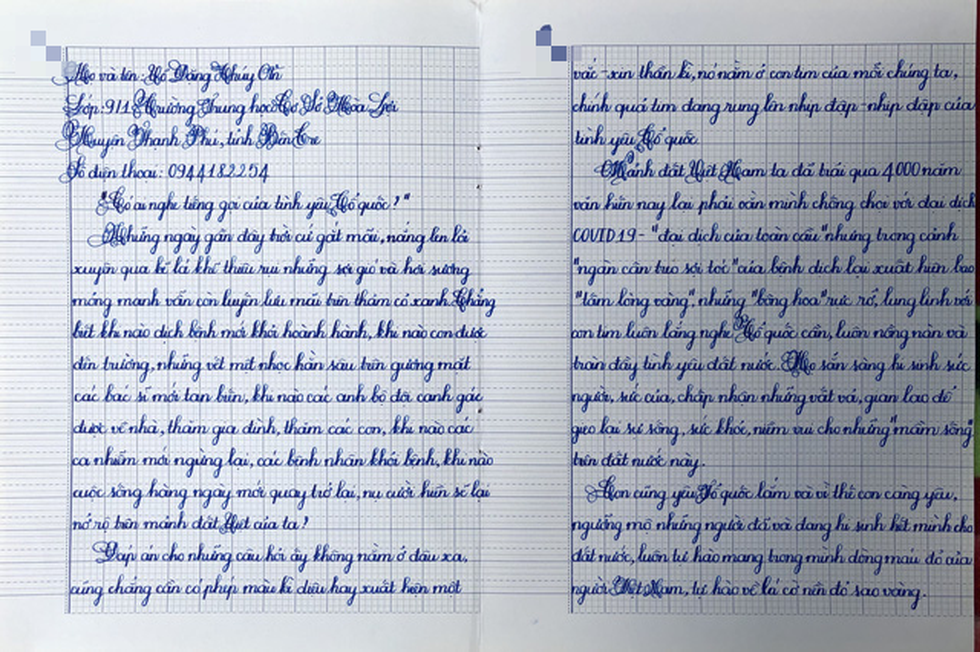 Họ và tên: Hồ Đặng Thúy An
Lớp: 9/1 Trường Trung học Cơ Sở Hòa Lợi
Huyện Thạnh Phú, tỉnh Bến Tre
Số điện thoại: 0944182254
"Có ai nghe tiếng gọi của tình yêu Tổ quốc?"
Những ngày gần đây trời cứ gắt mãi, nắng len lỏi
xuyên qua kẽ lá khẽ thiêu rụi những sợi gió và hơi sương
mỏng manh vẫn còn luyến lưu mãi trên thảm cỏ xanh. Chẳng
biết khi nào dịch bệnh mới khỏi hoành hành, khi nào con được
đến trường, những vết mệt nhọc hằn sâu trên gương mặt
các bác sĩ mới tan biến, khi nào các anh bộ đội canh gác
được về nhà, thăm gia đình, thăm các con, khi nào các
ca nhiễm mới ngừng lại, các bệnh nhân khỏi bệnh, khi nào
cuộc sống hàng ngày mới quay trở lại, nụ cười hiền sẽ lại
nở rộ trên mảnh đất Việt của ta?
Đáp án cho những câu hỏi ấy không nằm ở đâu xa,
cũng chẳng cần có phép màu kì diệu hay xuất hiện một
vắc-xin thần kì, nó nằm ở con tim của mỗi chúng ta,
chính quả tim đang rung lên nhịp đập - nhịp đập của
tình yêu Tổ quốc.
Mảnh đất Việt Nam ta đã trải qua 4000 năm
văn hiến nay lại phải oằn mình chống chọi với đại dịch
COVID19 - "đại dịch của toàn cầu" nhưng trong cảnh
"ngàn cân treo sợi tóc" của bệnh dịch lại xuất hiện bao
"tấm lòng vàng", những "bông hoa" rực rỡ, lung linh với
con tim luôn lắng nghe Tổ quốc cần, luôn nồng nàn và
tràn đầy tình yêu đất nước. Họ sẵn sàng hi sinh sức
người, sức của, chấp nhận những vất vả, gian lao để
gieo lại sự sống, sức khỏe, niềm vui cho những "mầm sống"
trên đất nước này.
Con cũng yêu Tổ quốc lắm và vì thế con càng yêu,
ngưỡng mộ những người đã và đang hi sinh hết mình cho
đất nước, luôn tự hào mang trong mình dòng máu đỏ của
người Việt Nam, tự hào về lá cờ nền đỏ sao vàng.